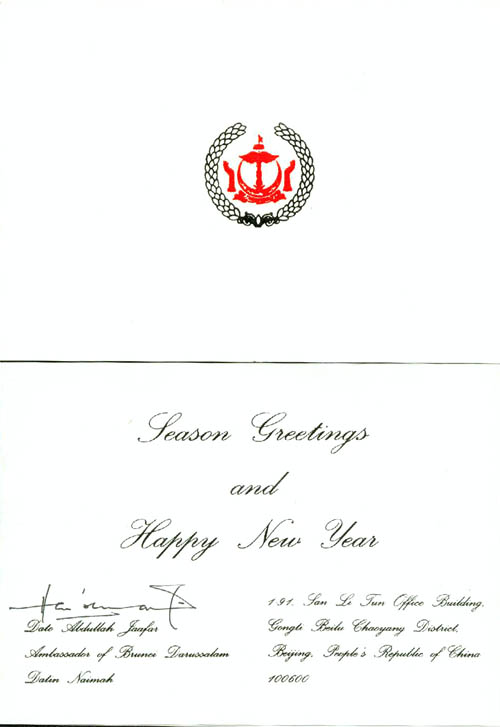 Season Greetings
and
Happy New Year
Dato Abdullah Jaafar
Ambassador of Brunei Darussalam
Datin Naimah
191, San Li Tun Office Building,
Gongti Beilu Chaoyang District,
Beijing, People's Republic of China
100600